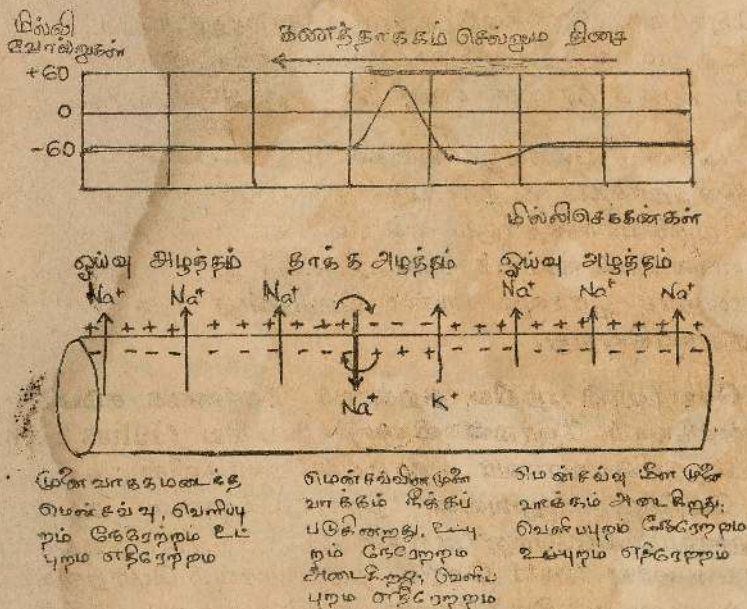 மில்லி
வோல்றுகள்
கணத்தாக்கம் செல்லும் திசை
+60
0
-60
மில்லிசெக்கன்கள்
ஓய்வு அழுத்தம் தாக்க அழுத்தம் ஓய்வு அழுத்தம்
Na+ Na+ Na+ Na+ Na+ Na+
+ + + + + + + + + + + + - - - + + + + + + + + + + +
- - - - - - - - - - + + + - - - - - - - - - -
Na+ K+
முனைவாக்கமடைந்த
மென்சவ்வு, வெளிப்பு
றம் நேரேற்றம் உட்
புறம் எதிரேற்றம்
மென்சவ்வின் முனை
வாக்கம் நீக்கப்
படுகின்றது, உட்பு
றம் நேரேற்றம்
அடைகிறது, வெளிப்
புறம் எதிரேற்றம்
மென்சவ்வு மீள முனை
வாக்கம் அடைகிறது,
வெளிப்புறம் நேரேற்றம்
உட்புறம் எதிரேற்றம்